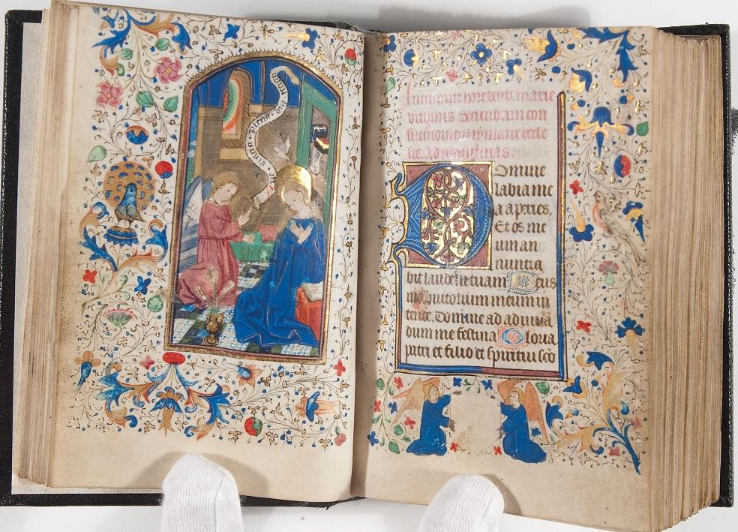 gratia plena
Incipiunt hore beate marie
virginis Secundum con
suetudinem romane eccle
sie Ad matutinas
Domine
labia me
a aperies.
Et os me
um an
nuntia
bit laudem tuam Deus
in adiutorium meum in
tende. Domine ad adiuua
dum me festina Gloria
patri et filio et spiritui sco